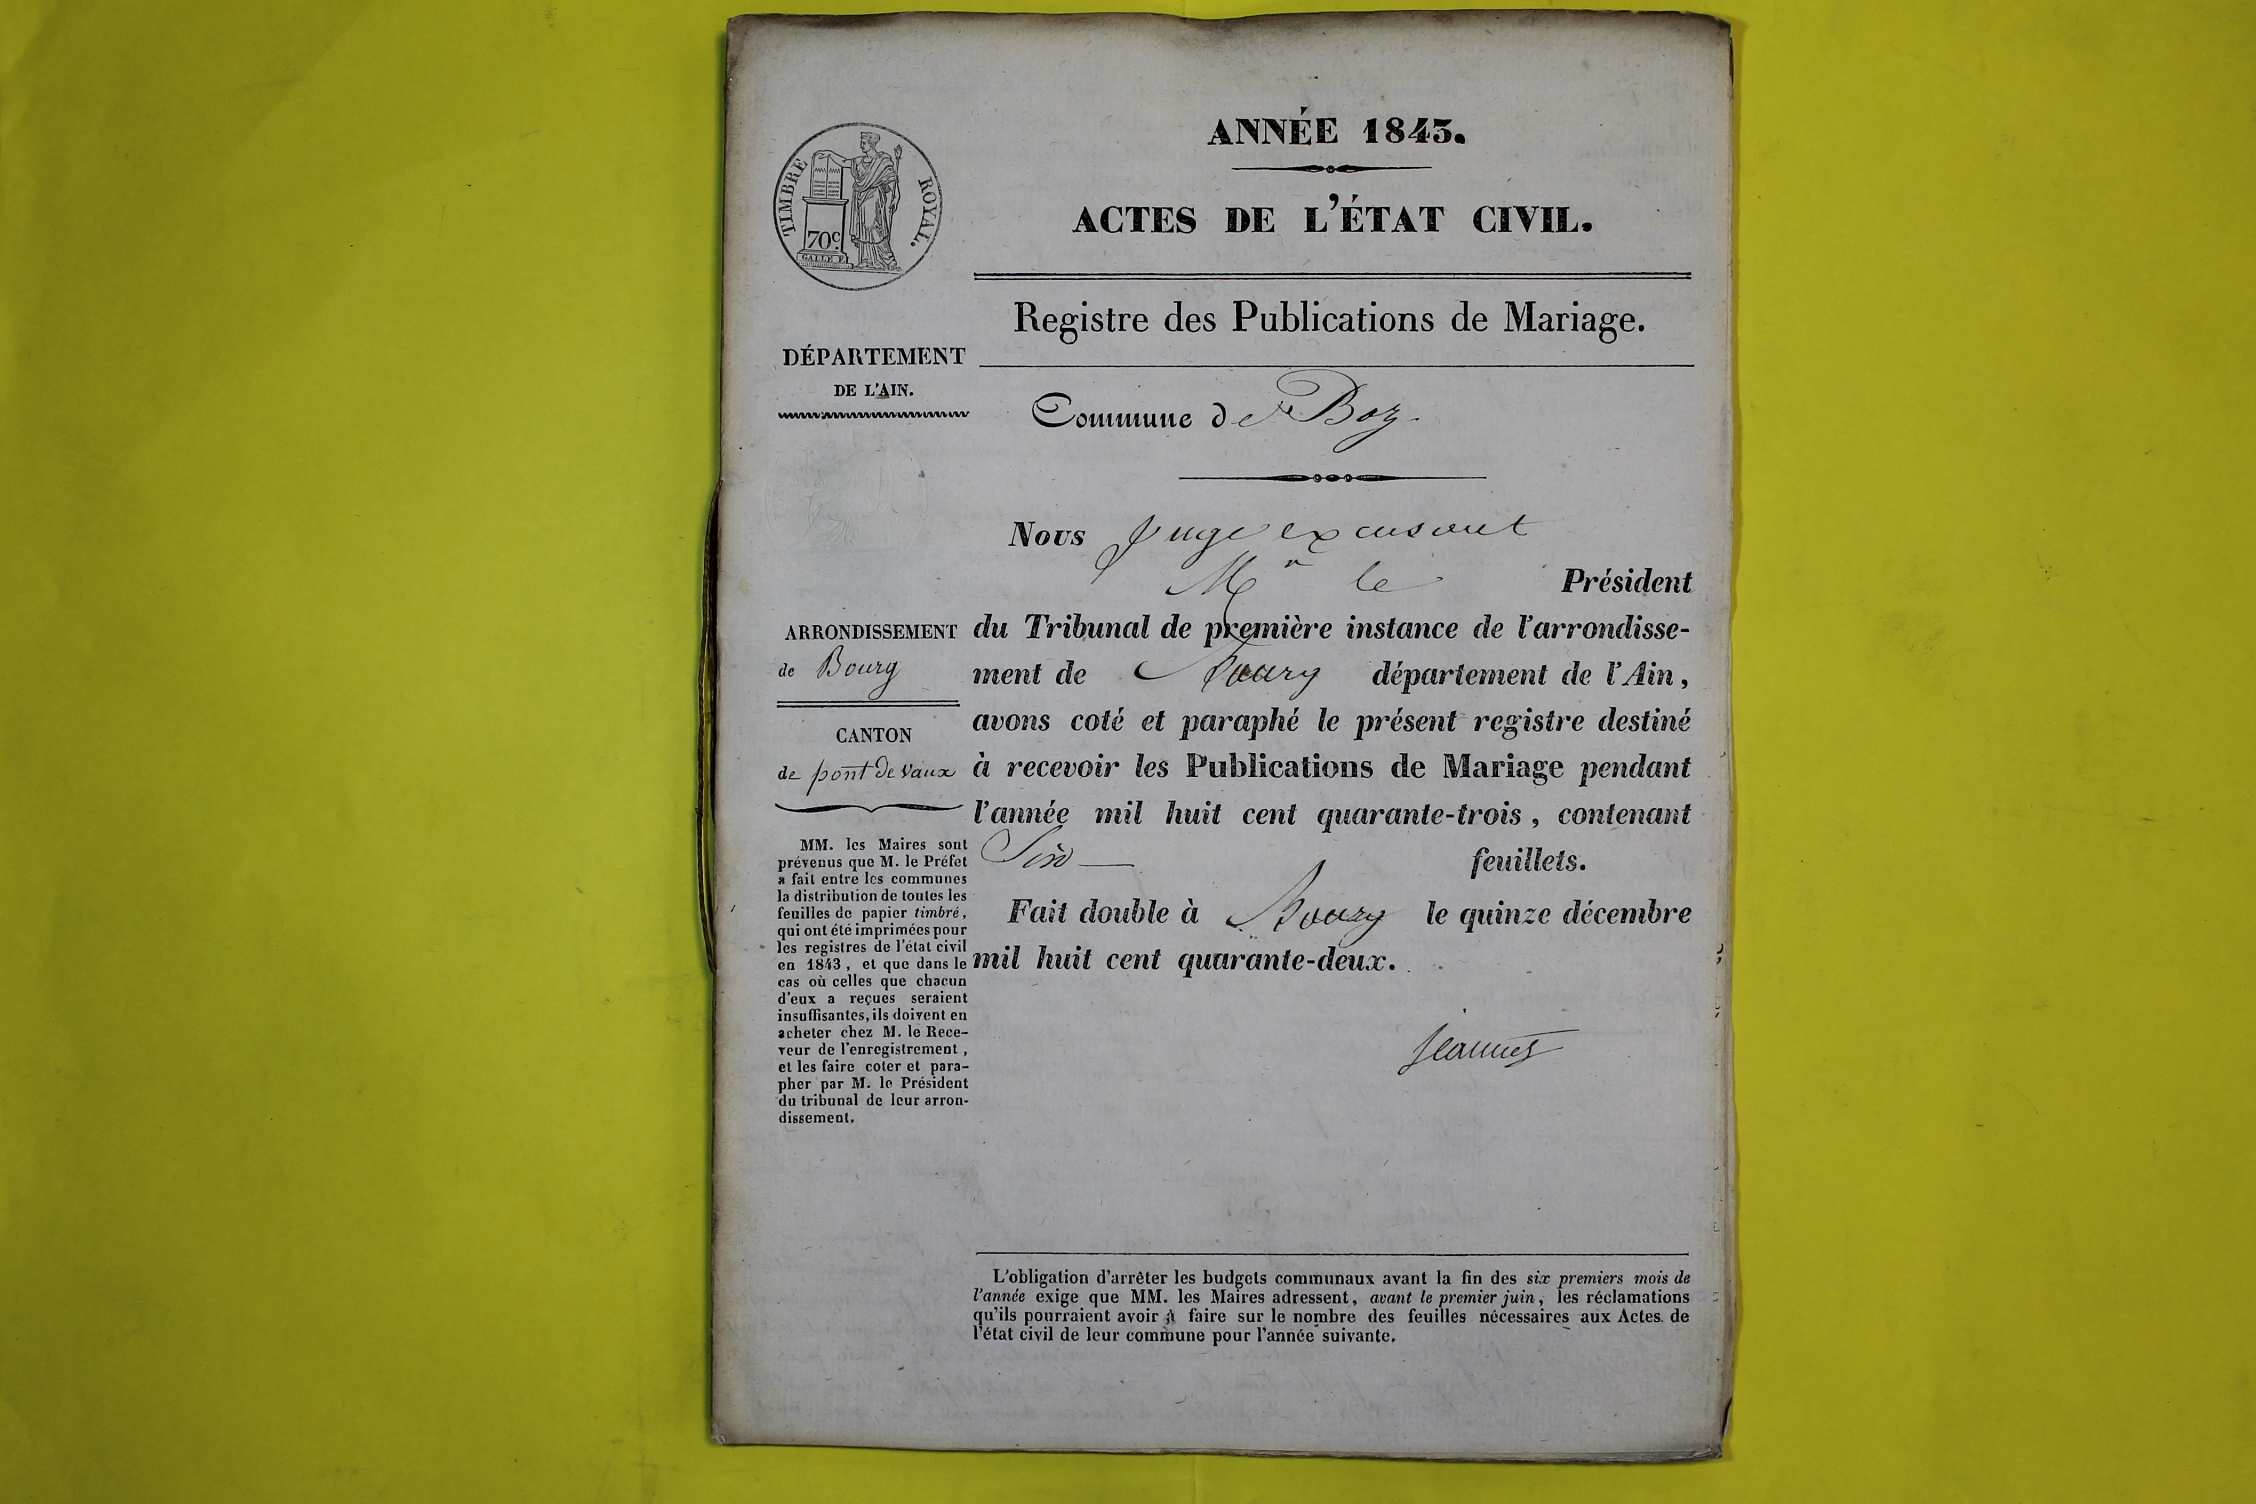 ANNÉE 1843.
ACTES DE L'ÉTAT CIVIL.
TIMBRE ROYAL.
70c.
GALLE F.
Registre des Publications de Mariage.
DÉPARTEMENT
DE L'AIN.
Commune de Boz
Nous Juge excusant
Mr le Président
ARRONDISSEMENT
de Bourg
CANTON
de pont de vaux
du Tribunal de première instance de l'arrondisse-
ment de Bourg département de l'Ain,
avons coté et paraphé le présent registre destiné
à recevoir les Publications de Mariage pendant
l'année mil huit cent quarante-trois, contenant
Six feuillets.
Fait double à Bourg le quinze décembre
mil huit cent quarante-deux.
MM. les Maires sont
prévenus que M. le Préfet
a fait entre les communes
la distribution de toutes les
feuilles de papier timbré,
qui ont été imprimées pour
les registres de l'état civil
en 1843, et que dans le
cas où celles que chacun
d'eux a reçues seraient
insuffisantes, ils doivent en
acheter chez M. le Rece-
veur de l'enregistrement,
et les faire coter et para-
pher par M. le Président
du tribunal de leur arron-
dissement.
L'obligation d'arrêter les budgets communaux avant la fin des six premiers mois de
l'année exige que MM. les Maires adressent, avant le premier juin, les réclamations
qu'ils pourraient avoir à faire sur le nombre des feuilles nécessaires aux Actes de
l'état civil de leur commune pour l'année suivante.